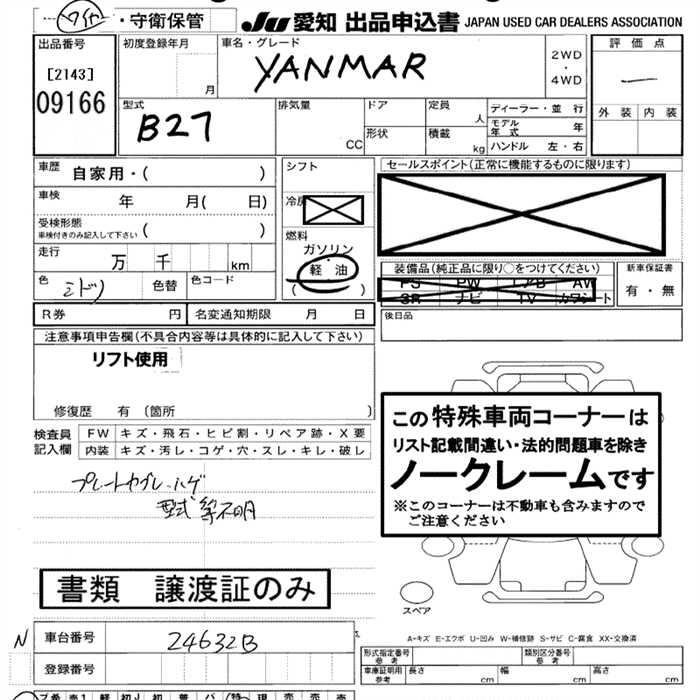 ワイヤー・守衛保管
JU 愛知 出品申込書 JAPAN USED CAR DEALERS ASSOCIATION
出品番号
[2143]
09166
初度登録年月
月
車名・グレード
YANMAR
2WD
・
4WD
評価点
外装 内装
型式
B27
排気量
CC
ドア
形状
定員
人
積載
kg
ディーラー・並行
モデル年式 年
ハンドル 左・右
車歴 自家用・( )
車検 年 月( 日)
受検形態
車検付きのみ記入して下さい ( )
走行 万 千 km
色 ミドリ 色替 色コード
シフト
冷房
燃料
ガソリン
軽・油
( )
セールスポイント(正常に機能するものに限ります)
装備品(純正品に限り○をつけてください)
PS PW エアB AW
SR ナビ TV カワシート
新車保証書
有・無
R券 円 名変通知期限 月 日
後日品
注意事項申告欄(不具合内容等は具体的に記入して下さい)
リフト使用
修復歴 有 〔箇所 〕
検査員
記入欄
FW キズ・飛石・ヒビ割・リペア跡・X要
内装 キズ・汚レ・コゲ・穴・スレ・キレ・破レ
プレートヤブレ、ハゲ
型式 不明
この特殊車両コーナーは
リスト記載間違い・法的問題車を除き
ノークレームです
※このコーナーは不動車も含みますので
ご注意ください
書類 譲渡証のみ
スペア
A-キズ E-エクボ U-凹み W-補修跡 S-サビ C-腐食 XX-交換済
N 車台番号 24632B
登録番号
形式指定番号
参考
類別区分番号
参考
車庫証明用
参考
長さ cm 幅 cm 高さ cm